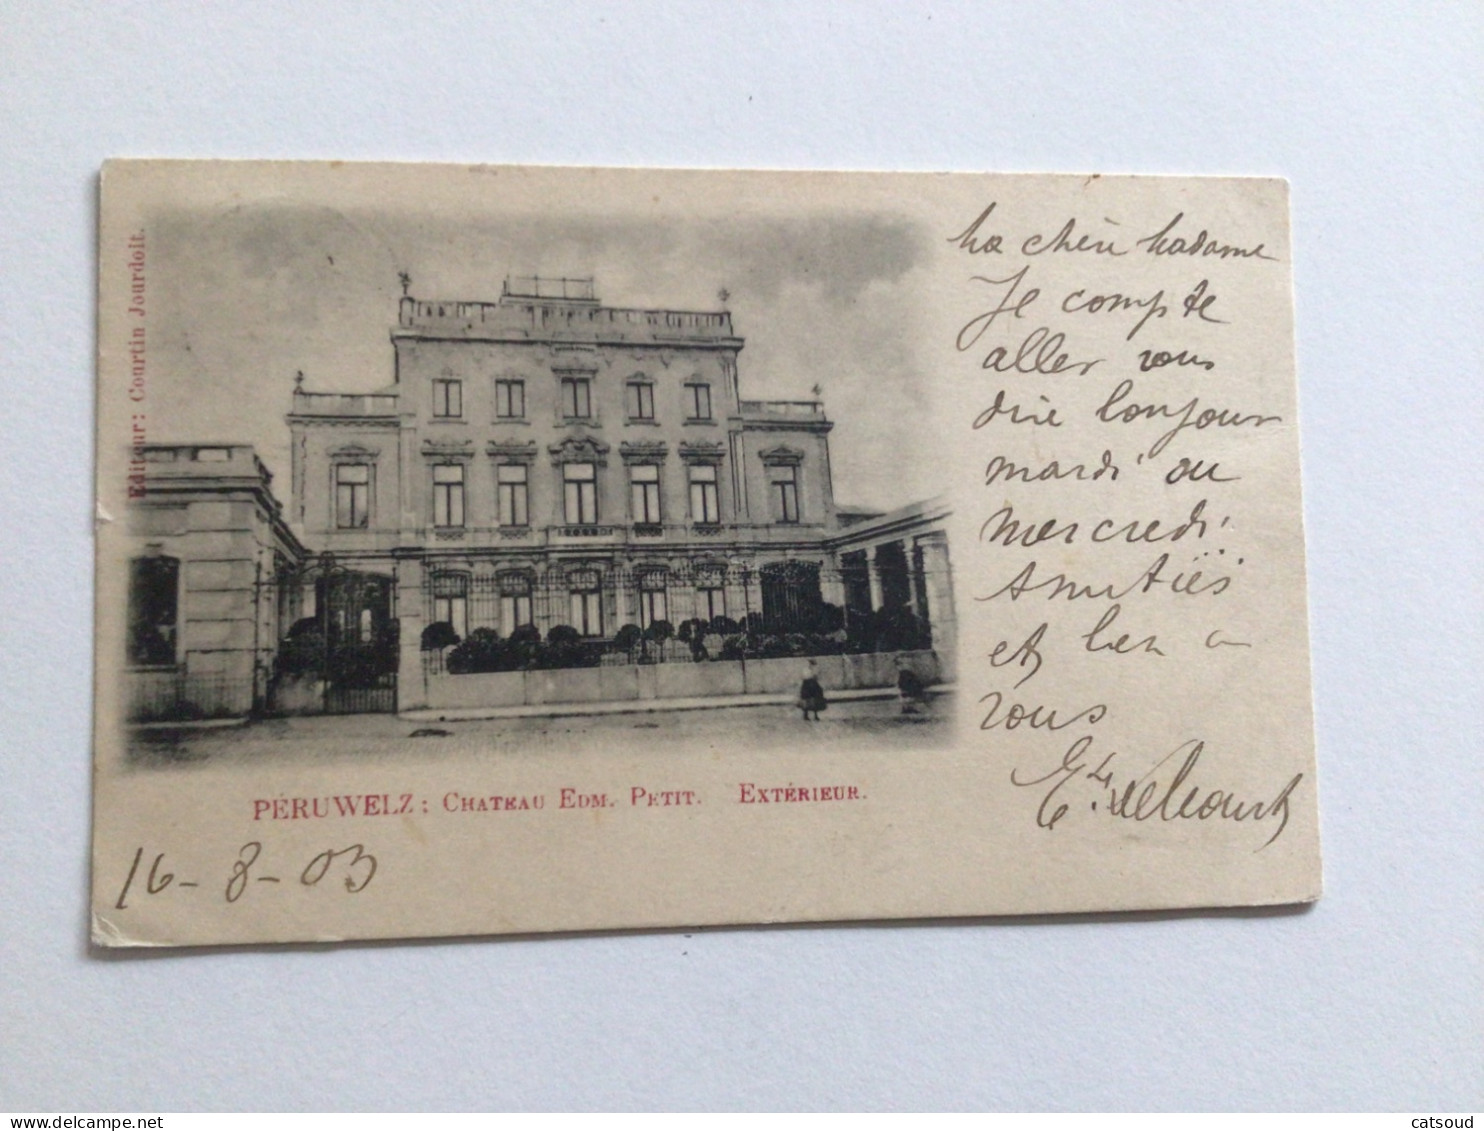 Editeur: Courtin Jourdoit.
Ma chère Madame
Je compte
aller vous
dire bonjour
mardi ou
mercredi.
Amitiés
et bien à
vous
PÉRUWELZ; CHATEAU EDM. PETIT. EXTÉRIEUR.
16-8-03
catsoud